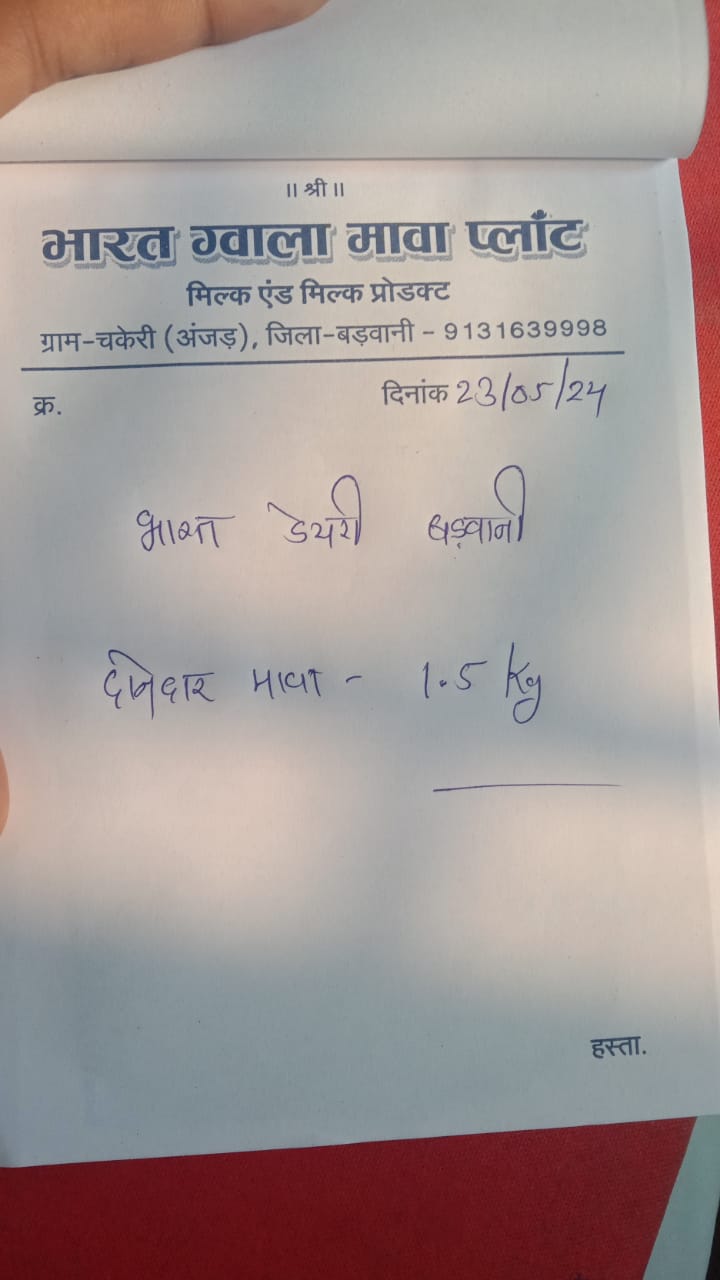 ॥ श्री ॥
भारत ग्वाला मावा प्लाँट
मिल्क एंड मिल्क प्रोडक्ट
ग्राम-चकेरी (अंजड़), जिला-बड़वानी - 9131639998
क्र. दिनांक 23/05/24
भारत डेयरी बड़वानी
दानेदार मावा - 1.5 Kg
हस्ता.